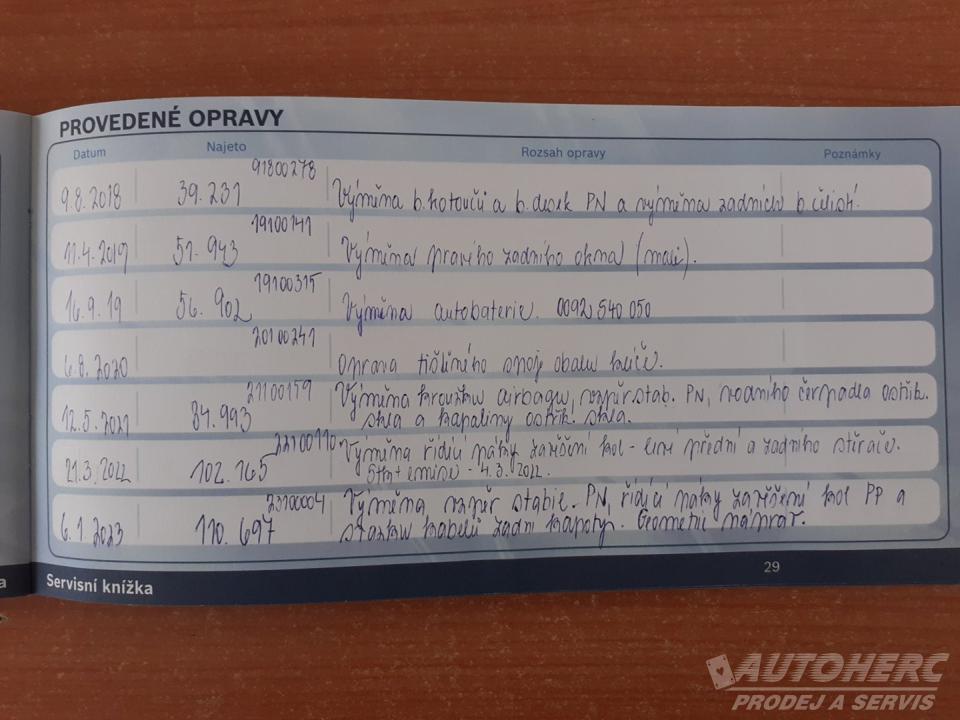 PROVEDENÉ OPRAVY
Datum Najeto Rozsah opravy Poznámky
91800278
9.8.2018 39.231 Výměna b.kotoučů a b.desek PN a výměna zadních b.čelistí.
19100141
11.4.2019 51.943 Výměna pravého zadního okna (malé).
19100315
16.9.19 56.902 Výměna autobaterie. 0092 S40 050
20100241
6.8.2020 Oprava tištěného spoje obalu klíče.
21100179 Výměna kroužku airbagu, vzpěr.stab. PN, vodního čerpadla ostřik.
12.5.2021 84.993 skla a kapaliny ostřik. skla.
22100110 Výměna řídící páky zavěšení kol - levé přední a zadního stěrače.
21.3.2022 102.165 Stk + emise - 4.3.2022
23100004 Výměna vzpěr stabil. PN, řídící páky zavěšení kol PP a
6.1.2023 110.697 svazku kabelů zadní kapoty. Geometrie náprav.
29
Servisní knížka
AUTOHERC
PRODEJ A SERVIS